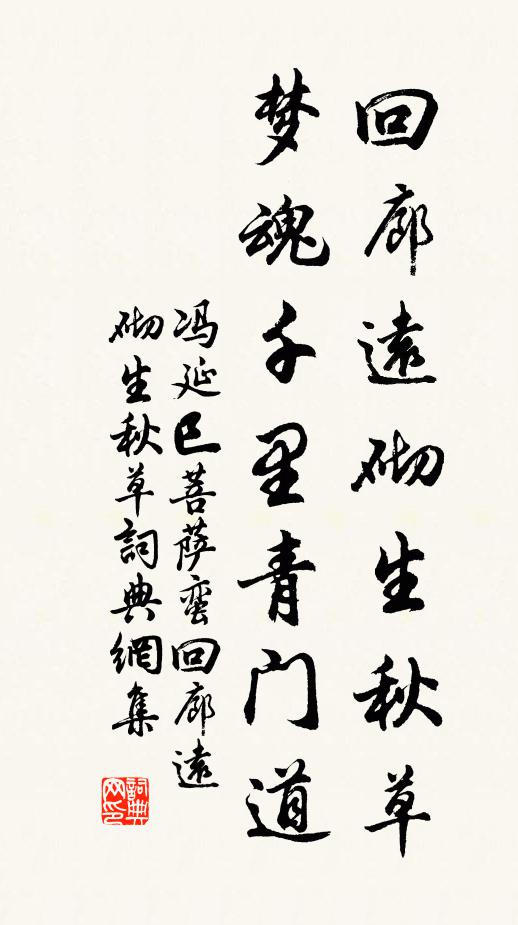 回廊遠砌生秋草
梦魂千里青门道
冯延巳菩萨蛮回廊遠
砌生秋草詞典網集
詞典
网印